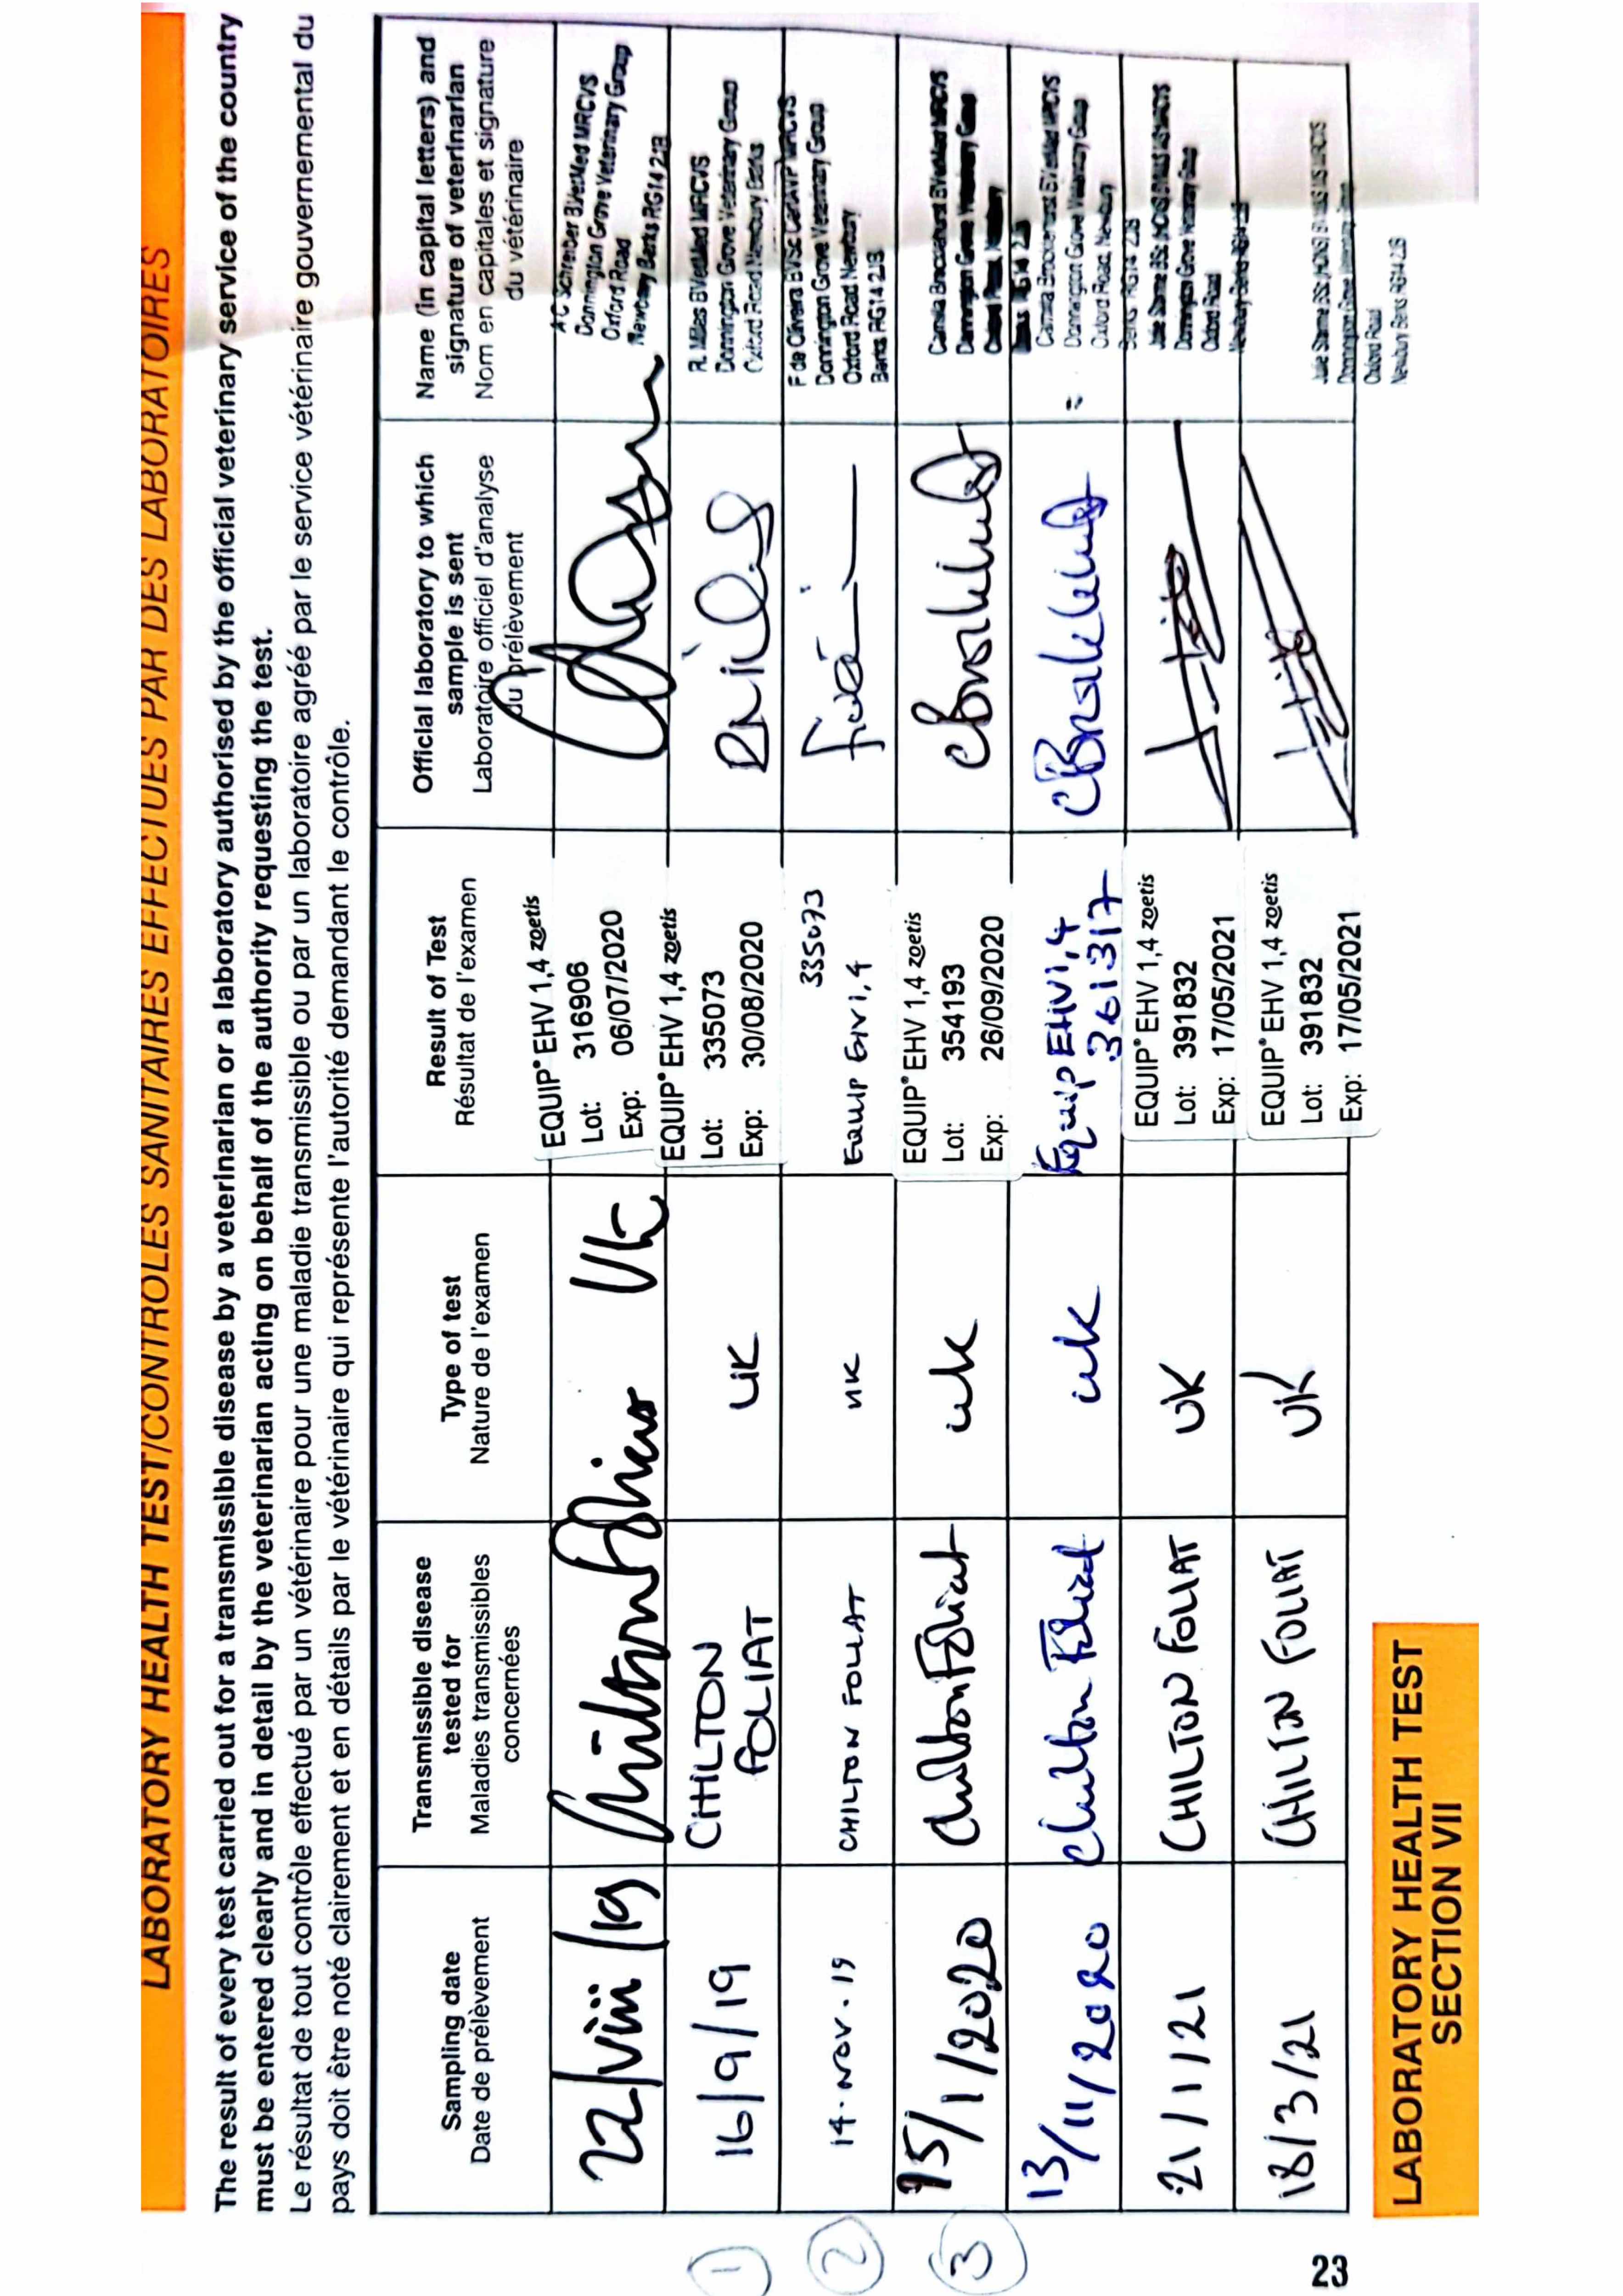 LABORATORY HEALTH TEST/CONTROLES SANITAIRES EFFECTUES PAR DES LABORATOIRES
The result of every test carried out for a transmissible disease by a veterinarian or a laboratory authorised by the official veterinary service of the country
must be entered clearly and in detail by the veterinarian acting on behalf of the authority requesting the test.
Le résultat de tout contrôle effectué par un vétérinaire pour une maladie transmissible ou par un laboratoire agréé par le service vétérinaire gouvernemental du
pays doit être noté clairement et en détails par le vétérinaire qui représente l'autorité demandant le contrôle.
Sampling date
Date de prélèvement
Transmissible disease
tested for
Maladies transmissibles
concernées
Type of test
Nature de l'examen
Result of Test
Résultat de l'examen
Official laboratory to which
sample is sent
Laboratoire officiel d'analyse
du prélèvement
Name (in capital letters) and
signature of veterinarian
Nom en capitales et signature
du vétérinaire
22/viii/19
Chilton Foliat
UK
EQUIP® EHV 1,4 zoetis
Lot: 316906
Exp: 06/07/2020
A C Schreiber BVetMed MRCVS
Donnington Grove Veterinary Group
Oxford Road
Newbury Berks RG14 2JB
1
16/9/19
CHILTON
FOLIAT
UK
EQUIP® EHV 1,4 zoetis
Lot: 335073
Exp: 30/08/2020
R. Miles BVetMed MRCVS
Donnington Grove Veterinary Group
Oxford Road Newbury Berks
2
14.NOV.19
CHILTON FOLIAT
UK
335073
EQUIP EHV 1,4
F de Oliveira BVSc CertAVP MRCVS
Donnington Grove Veterinary Group
Oxford Road Newbury
Berks RG14 2JB
3
15/1/2020
Chilton Foliat
UK
EQUIP® EHV 1,4 zoetis
Lot: 354193
Exp: 26/09/2020
Donnington Grove Veterinary Group
13/11/2020
Chilton Foliat
UK
Equip EHV 1,4
361317
Donnington Grove Veterinary Group
Oxford Road, Newbury
Berks RG14 2JB
21/1/21
CHILTON FOLIAT
UK
EQUIP® EHV 1,4 zoetis
Lot: 391832
Exp: 17/05/2021
Donnington Grove Veterinary Group
Oxford Road
18/3/21
CHILTON FOLIAT
UK
EQUIP® EHV 1,4 zoetis
Lot: 391832
Exp: 17/05/2021
Oxford Road
Newbury Berks RG14 2JB
LABORATORY HEALTH TEST
SECTION VII
23